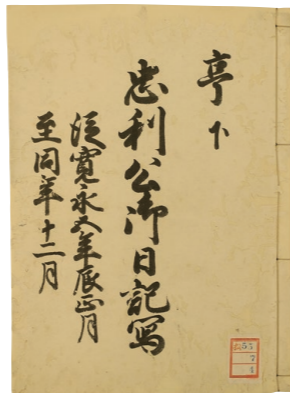 亭下
忠利公御日記写
従寛永五年辰正月
至同年十二月